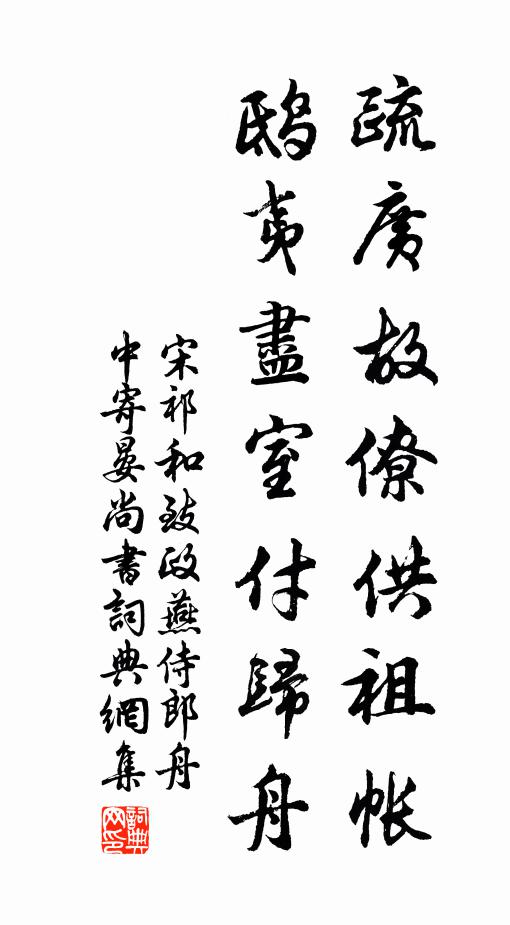 疏廣故僚供祖帳
鴟夷盡室付歸舟
宋祁和致政燕侍郎舟
中寄晏尚書詞典網集
詞典
网印